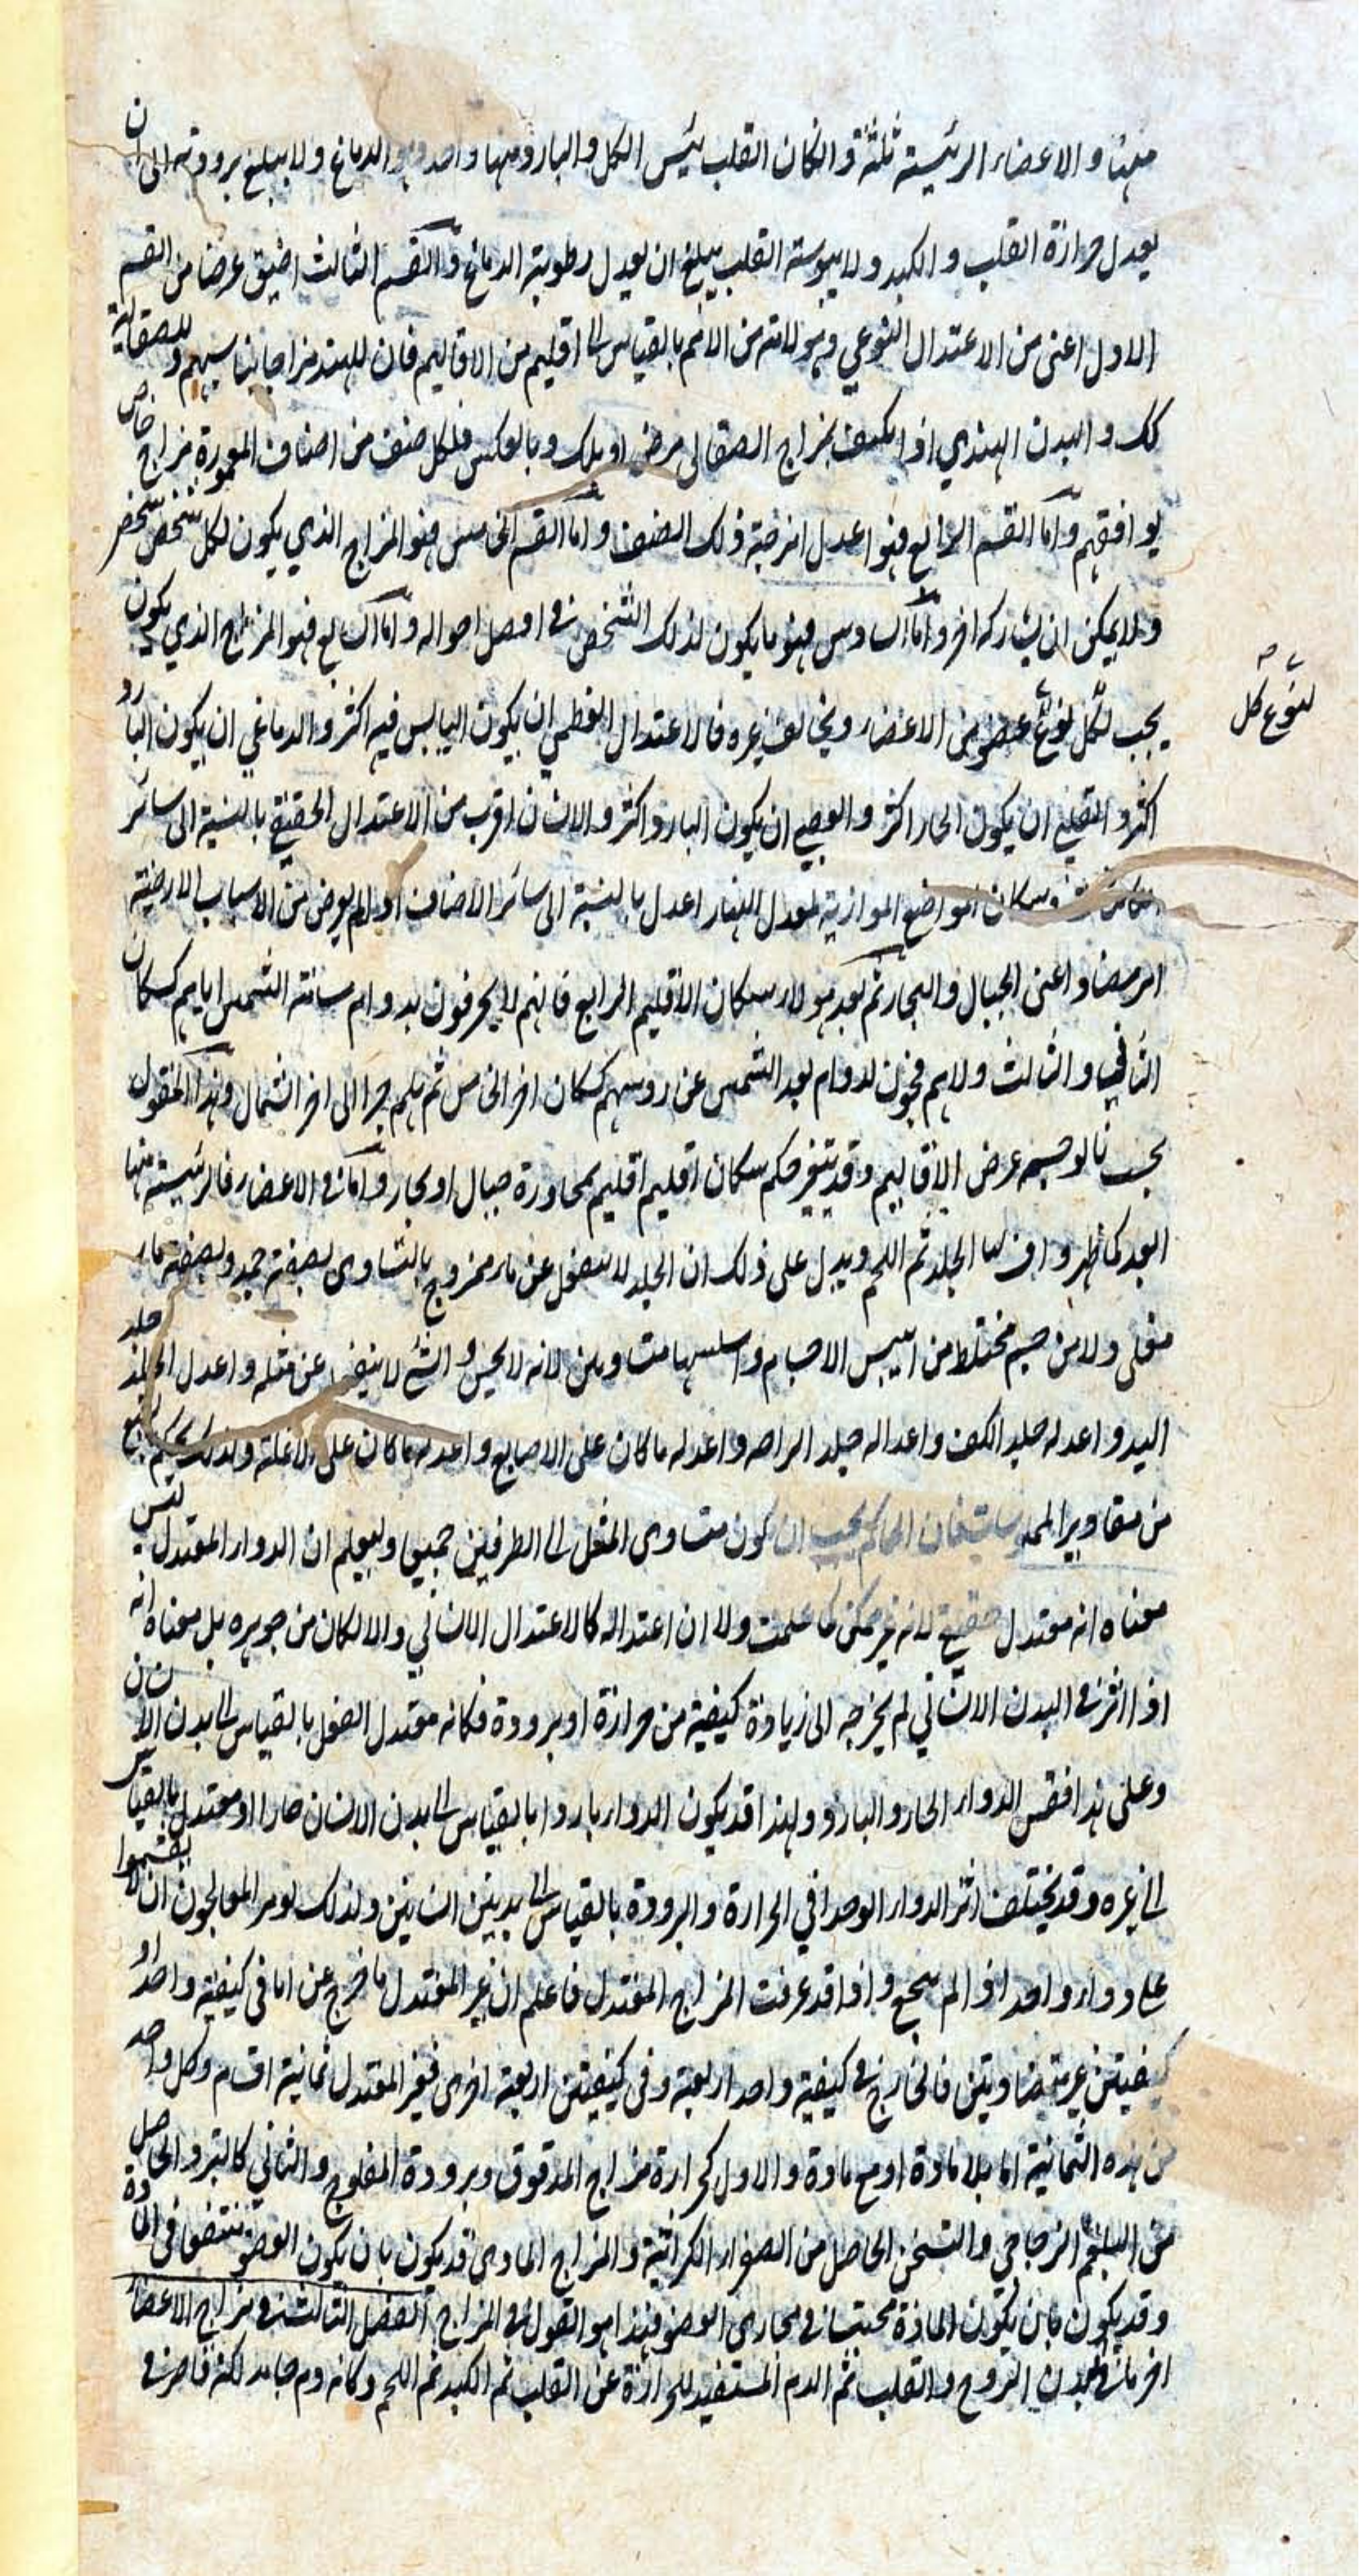 منها والاعضاء الرئيسة ثلثة وان كان القلب رئيس الكل والبارد منها واحد وهو الدماغ ولا يبلغ برودته الى ان
يعدل حرارة القلب والكبد ولا يبوسة القلب يبلغ ان يعدل رطوبة الدماغ واما القسم الثالث اضيق عرضا من القسم
الاول اعنى من الاعتدال النوعي وهو لامة من الامم بالقياس الى اقليم من الاقاليم فان للهند مزاجا يناسبهم وللصقالبة
كك والبدن الهندي اذا تكيف بمزاج الصقالبى مرض او هلك وبالعكس فلكل صنف من اصناف المعمورة مزاج خاص
يوافقهم واما القسم الرابع فهو اعدل امزجة ذلك الصنف واما القسم الخامس فهو المزاج الذي يكون لكل شخص شخص
ولا يمكن ان يشاركه اخر واما السادس فهو ما يكون لذلك الشخص في افضل احواله واما السابع فهو المزاج الذي يكون
يجب لكل نوع عضو من الاعضاء ويخالف غيره فالاعتدال العظمي ان يكون اليابس فيه اكثر والدماغي ان يكون البارد
لنوع كل
اكثر والقلبي ان يكون الحار اكثر والعصبي ان يكون البارد اكثر والانسان اقرب من الاعتدال الحقيقي بالنسبة الى سائر
وسكان المواضع الموازية لمعدل النهار اعدل بالنسبة الى سائر الاصناف اذ لم يعرض من الاسباب الارضية
امر مضاد اعنى الجبال والبحار ثم بعد هولاء سكان الاقليم الرابع فانهم لا يحرقون بدوام مسامتة الشمس اياهم كسكان
الثاني والثالث ولا هم فجون لدوام بعد الشمس عن رؤسهم كسكان اخر الخامس ثم هلم جرا الى اخر الشمال وهذا المنقول
بحسب عرض الاقاليم وقد يتغير حكم سكان اقليم اقليم بمجاورة جبال او بحار واما في الاعضاء فالرئيسة منها
ابعد كما ظهر واقربها الجلد ثم اللحم ويدل على ذلك ان الجلد لا ينفعل عن ماء ممزوج بالتساوى نصفه جمد ونصفه ماء
مغلى ولا من جسم مختلط من ايبس الاجسام واسلسها متساويين لانه لا يحس والشئ لا ينفعل عن مثله واعدل الجلد جلد
اليد واعدله جلد الكف واعدله جلد الراحة واعدله ما كان على الاصابع واعدله ما كان على الانملة ولذلك يحكم
من مقادير الملموسات فان الحاكم يجب ان يكون متساوى المثل الى الطرفين جميعا وليعلم ان الدواء المعتدل ليس
معناه انه معتدل حقيقي لانه غير ممكن كما علمت ولا ان اعتداله كالاعتدال الانساني والا لكان من جوهره بل معناه انه
اذا اثر في البدن الانساني لم يخرجه الى زيادة كيفية من حرارة او برودة فكانه معتدل الفعل بالقياس الى بدن الانسان
وعلى هذا فقس الدواء الحار والبارد ولهذا قد يكون الدواء باردا بالقياس الى بدن الانسان حارا او معتدل بالقياس
الى غيره وقد يختلف اثر الدواء الوحد افي الحرارة والبرودة بالقياس الى بدنين انسانين ولذلك يومر المعالجون ان لا يقيموا
على دواء واحد اذا لم ينجع واذا قد عرفت المزاج المعتدل فاعلم ان غير المعتدل ما خرج عن اما فى كيفية واحدة او
كيفيتين غير متضاديتين فالخارج في كيفية واحد اربعة وفى كيفيتين اربعة اخرى فغير المعتدل ثمانية اقسام وكل واحد
من هذه الثمانية اما بلا مادة او مع مادة والاول كحرارة مزاج المدقوق وبرودة المفلوج والثاني كالتبرد الحاصل
من البلغم الزجاجي والتسخن الحاصل من الصفراء الكراثية والمزاج المادى قد يكون بان يكون العضو منتقعا في المادة
وقد يكون بان يكون المادة محتبسة في مجارى العضو فهذا هو القول في المزاج الفصل الثالث في مزاج الاعضاء
احر ما في البدن الروح والقلب ثم الدم المستفيد للحرارة عن القلب ثم الكبد ثم اللحم وكانه دم جامد لكنه قاصر في